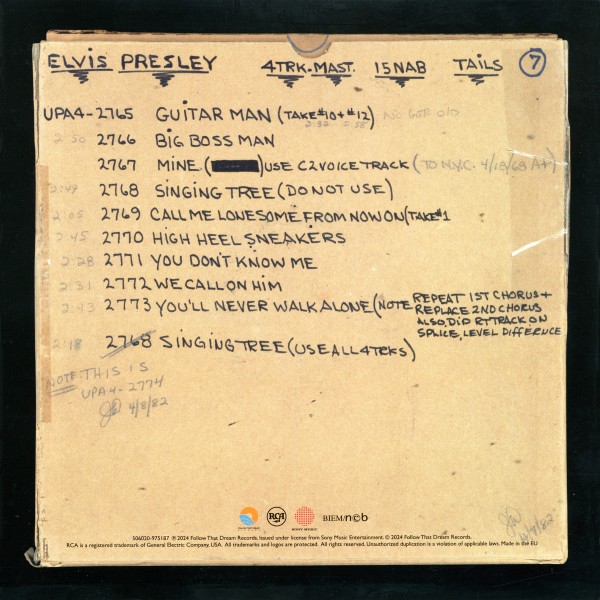 ELVIS PRESLEY 4TRK.MAST. 15 NAB TAILS 7
UPA4-2765 GUITAR MAN (TAKE#10+#12)
2:32 2:58
2:50 2766 BIG BOSS MAN
2767 MINE ( ) USE C2 VOICE TRACK (TO N.Y.C. 4/18/68 A+)
2:49 2768 SINGING TREE (DO NOT USE)
2:05 2769 CALL ME LONESOME FROM NOW ON (TAKE#1
2:45 2770 HIGH HEEL SNEAKERS
2:28 2771 YOU DON'T KNOW ME
2:31 2772 WE CALL ON HIM
2:43 2773 YOU'LL NEVER WALK ALONE (NOTE REPEAT 1ST CHORUS +
REPLACE 2ND CHORUS
ALSO, DIP RT TRACK ON
SPLICE, LEVEL DIFFERENCE
2:18 2768 SINGING TREE (USE ALL 4 TRKS)
NOTE: THIS IS
UPA4-2774
4/8/82
RCA SONY MUSIC BIEM/ncb
506020-975187 ℗ 2024 Follow That Dream Records. Issued under license from Sony Music Entertainment. © 2024 Follow That Dream Records.
RCA is a registered trademark of General Electric Company, USA. All trademarks and logos are protected. All rights reserved. Unauthorized duplication is a violation of applicable laws. Made in the EU